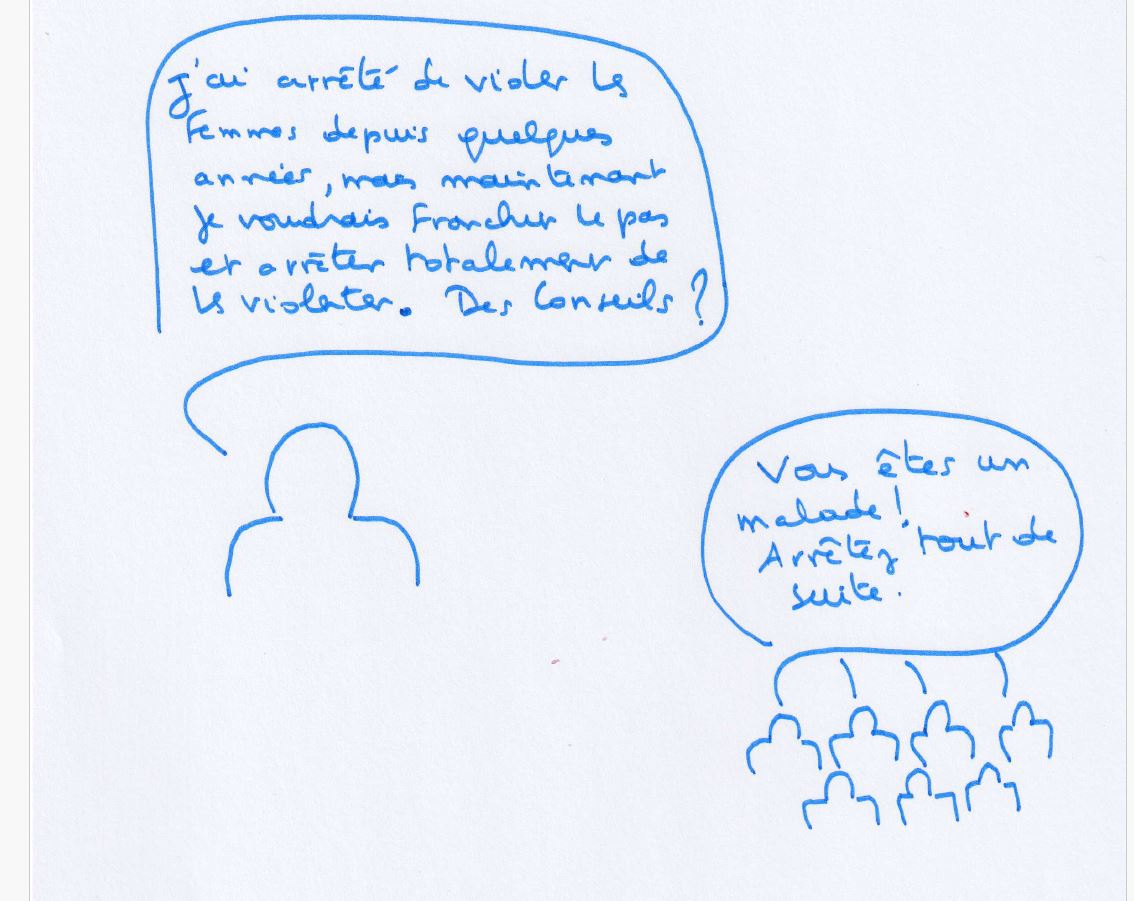 J'ai arrêté de violer les
femmes depuis quelques
années, mais maintenant
je voudrais franchir le pas
et arrêter totalement de
les violenter. Des conseils ?
Vous êtes un
malade !
Arrêtez tout de
suite.